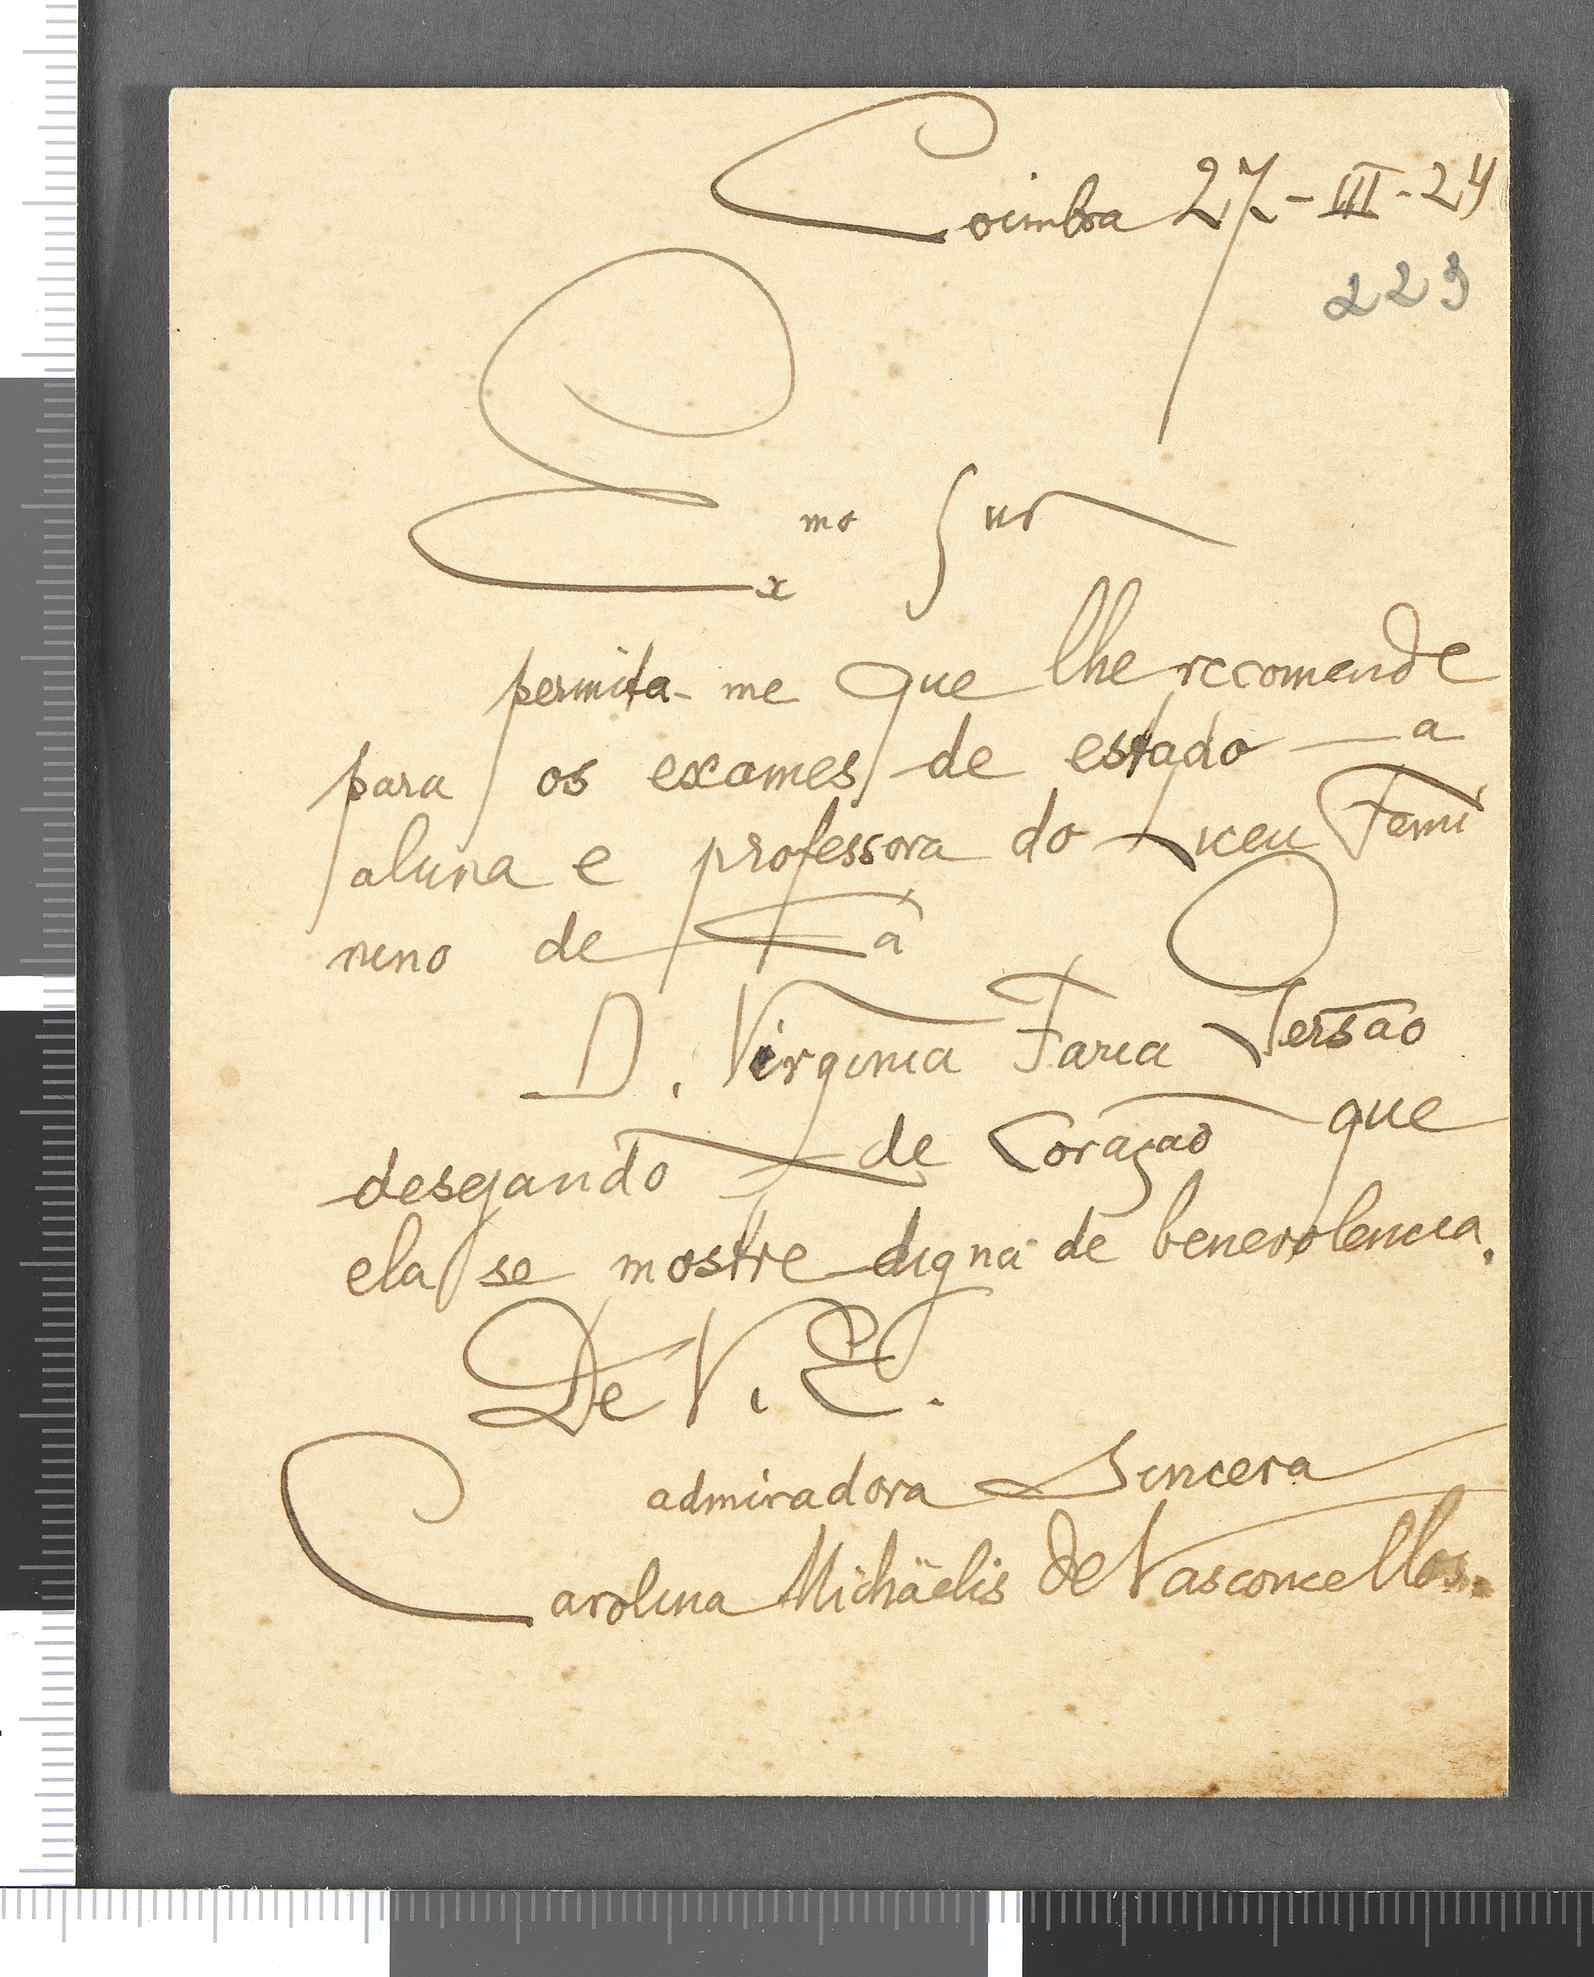 Coimbra 27-III-24
223
Ex.mo Snr
permita-me que lhe recomende
para os exames de estado — a
aluna e professora do Liceu Femi
nino de cá
D. Virginia Faria Gersão
desejando de Coração que
ela se mostre digna de benevolencia.
De V. E.
admiradora Sincera
Carolina Michäelis de Vasconcellos.